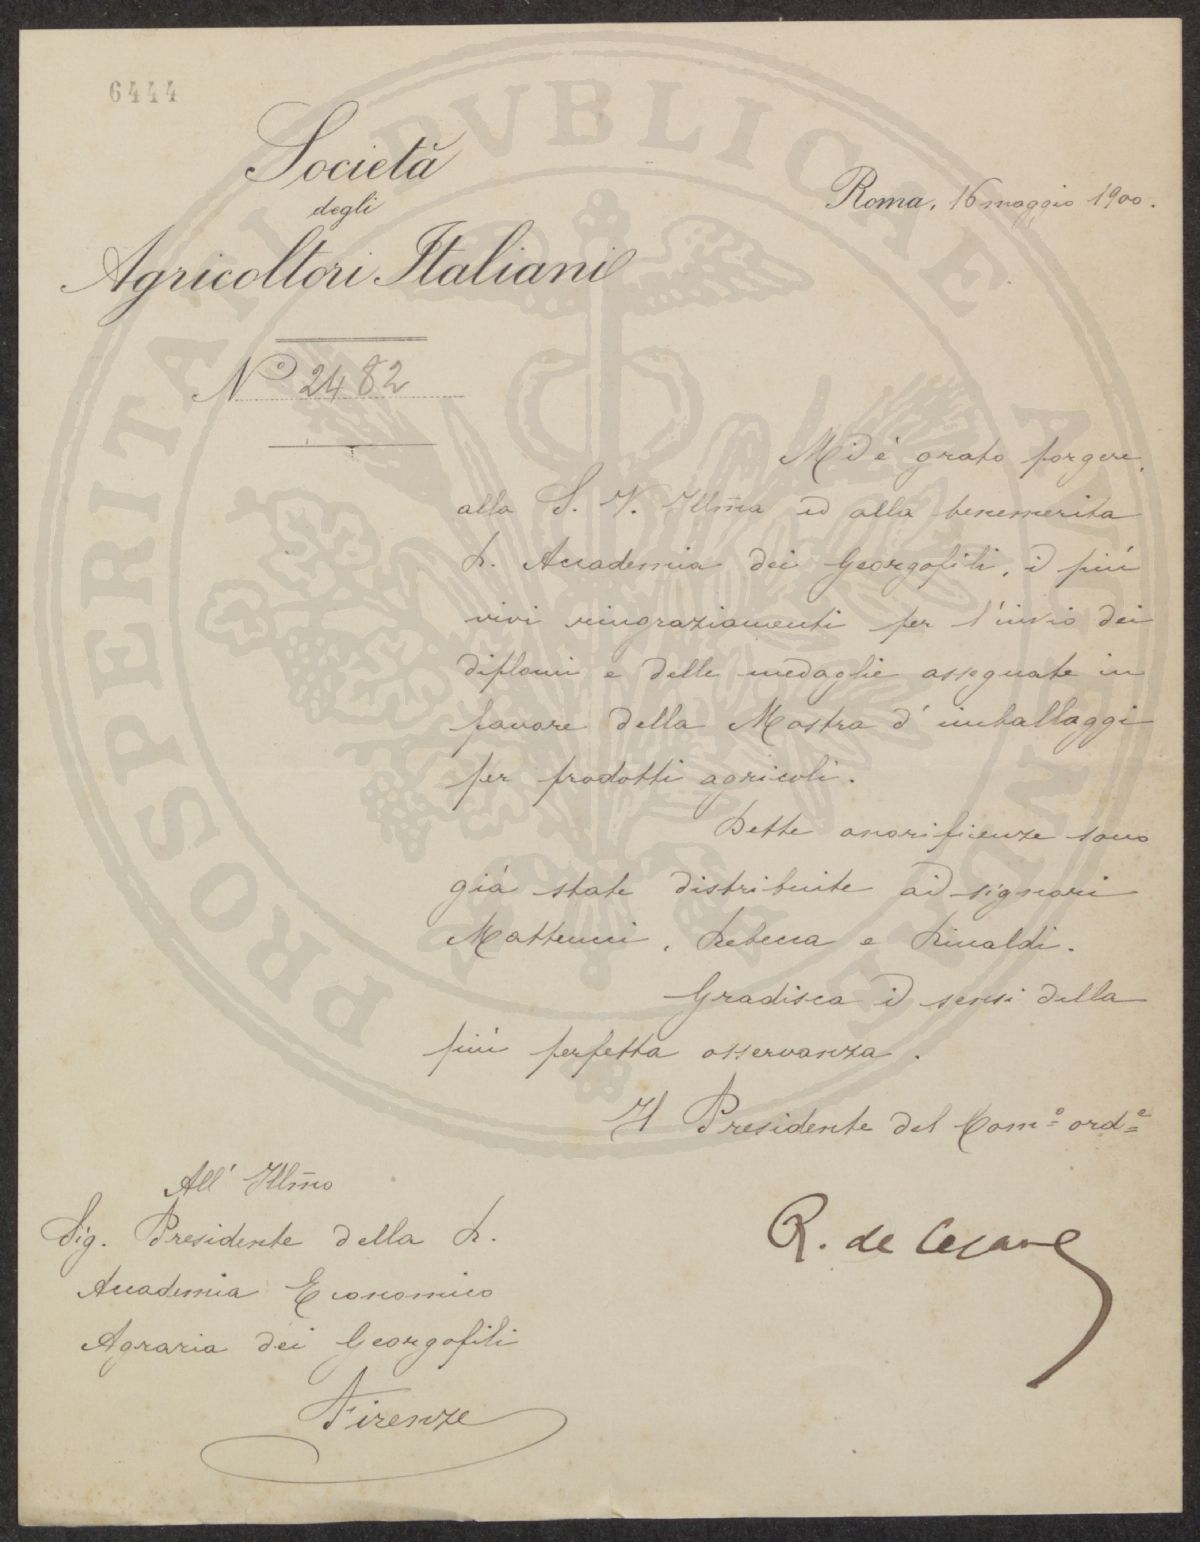 6444
Società
degli
Agricoltori Italiani
Roma, 16 maggio 1900.
N.º 2482
PROSPERITATI PVBLICAE AVGENDAE
Mi è grato porgere,
alla S. V. Illma ed alla benemerita
R. Accademia dei Georgofili, i più
vivi ringraziamenti per l'invio dei
diplomi e delle medaglie assegnate in
favore della Mostra d'imballaggi
per prodotti agricoli.
Dette onorificenze sono
già state distribuite ai signori
Matteucci, Rebecca e Rinaldi.
Gradisca i sensi della
più perfetta osservanza.
Il Presidente del Comº ordº
R. de Cesare
All' Illmo
Sig. Presidente della R.
Accademia Economico
Agraria dei Georgofili
Firenze